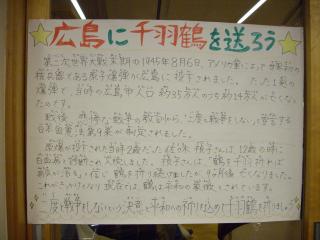 広島に千羽鶴を送ろう
第二次世界大戦末期の1945年8月6日、アメリカ軍によって世界初の
核兵器である原子爆弾が広島に投下されました。たった1発の
爆弾で、当時の広島市人口約35万人のうち約14万人が亡くなっ
たのです。
戦後、悲惨な戦争の教訓から、二度と戦争をしないと誓う
日本国憲法第9条が制定されました。
原爆が投下された当時2歳だった佐々木禎子さんは、12歳の時に
白血病と診断され入院しました。禎子さんは、"鶴を千羽折れば
病気が治る"と信じ鶴を折り続けましたが、8ヶ月後亡くなりました。
これがきっかけとなり現在では、鶴は平和の象徴とされています。
二度と戦争をしないという決意と平和への祈りを込めて千羽鶴を折りましょう